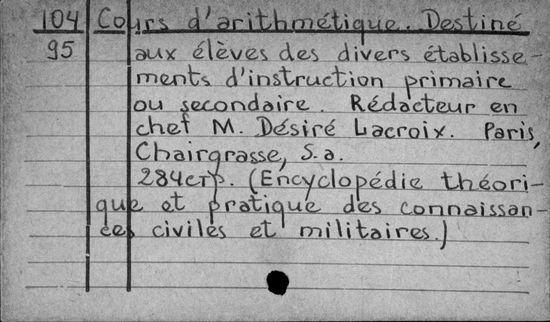 104 Cours d'arithmétique. Destiné
95 aux élèves des divers établisse-
ments d'instruction primaire
ou secondaire. Rédacteur en
chef M. Désiré Lacroix. Paris,
Chairgrasse, S.a.
284стр. (Encyclopédie théori-
que et pratique des connaissan-
ces civiles et militaires.)